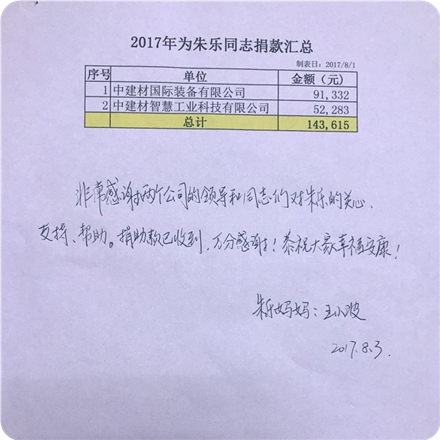 2017年为朱乐同志捐款汇总
制表日：2017/8/1
序号 单位 金额（元）
1 中建材国际装备有限公司 91,332
2 中建材智慧工业科技有限公司 52,283
总计 143,615
非常感谢两个公司的领导和同志们对朱乐的关心、
支持、帮助。捐助款已收到，万分感谢！恭祝大家幸福安康！
朱乐妈妈：王小波
2017.8.3.